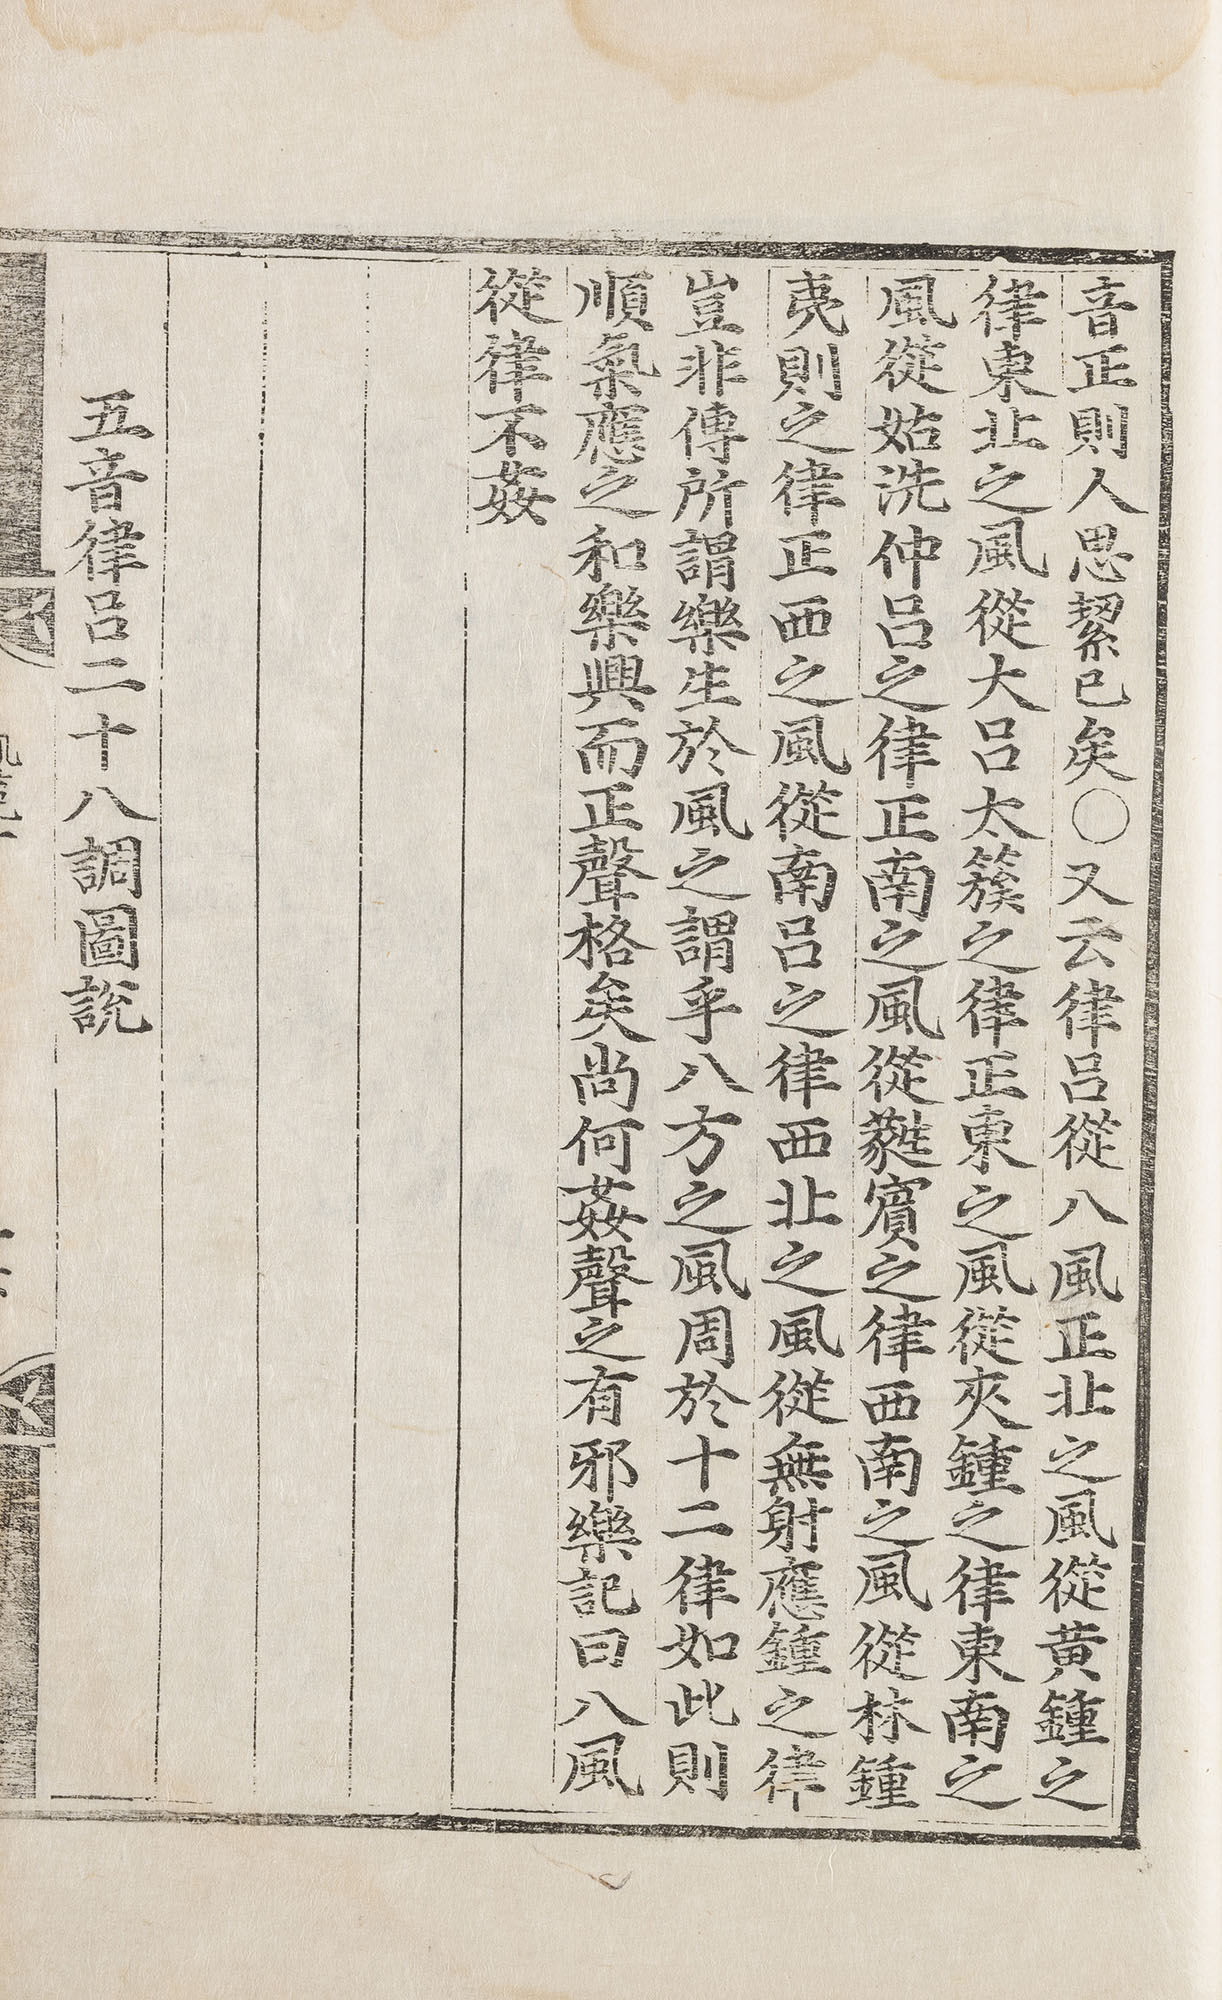 音正則人思絜已矣○又云律呂從八風正北之風從黃鍾之
律東北之風從大呂太簇之律正東之風從夾鍾之律東南之
風從姑洗仲呂之律正南之風從蕤賓之律西南之風從林鍾
夷則之律正西之風從南呂之律西北之風從無射應鍾之律
豈非傳所謂樂生於風之謂乎八方之風周於十二律如此則
順氣應之和樂興而正聲格矣尚何姦聲之有邪樂記曰八風
從律不姦
五音律呂二十八調圖說